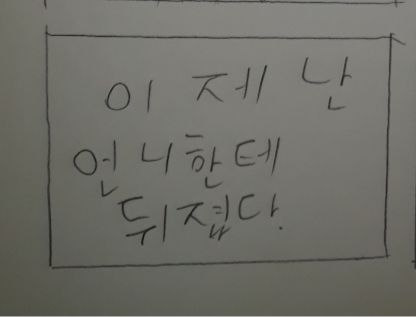 이제 난
언니한테
뒤졌다.